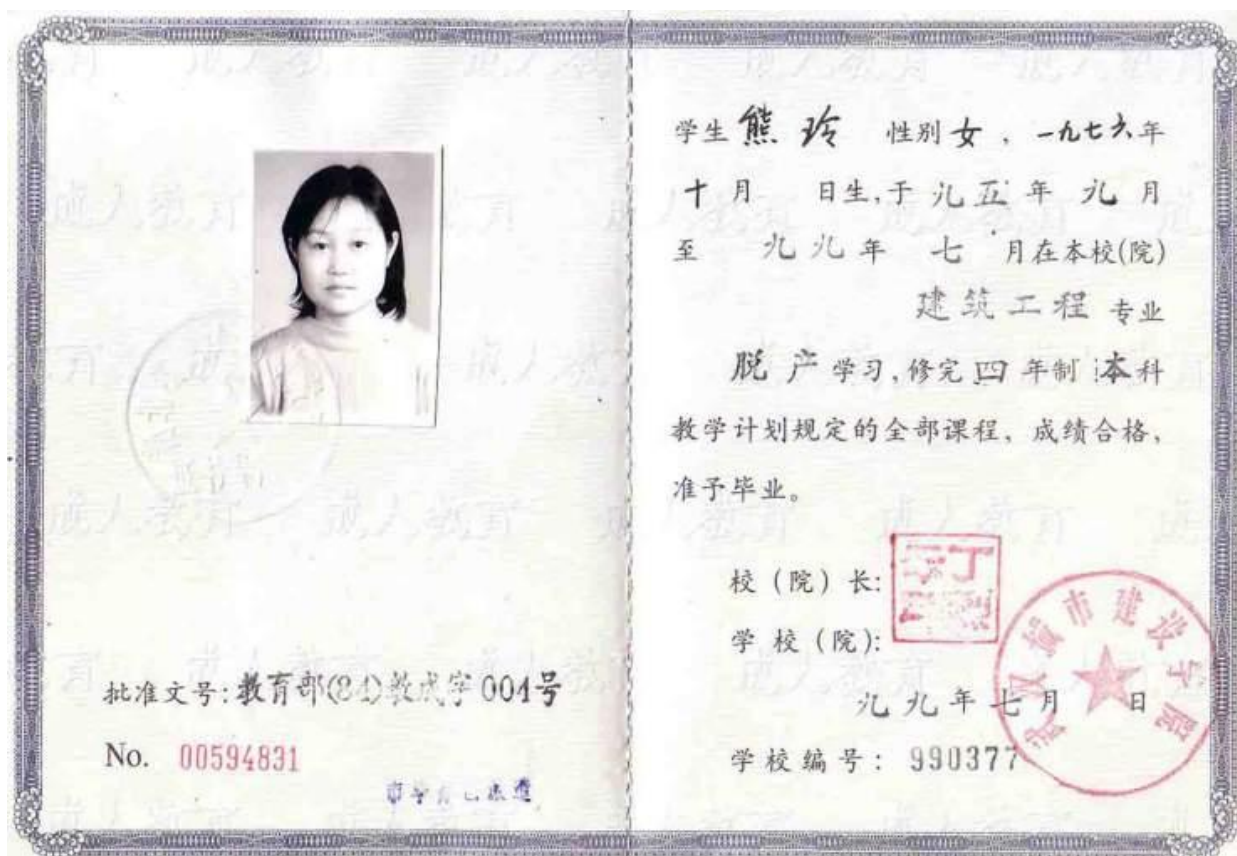 批准文号:教育部(84)教成字001号
No. 00594831
学生 熊玲 性别 女 , 一九七六年
十月 日生,于 九五 年 九月
至 九九年 七 月在本校(院)
建筑工程 专业
脱产 学习,修完 四 年制 本科
教学计划规定的全部课程、成绩合格,
准予毕业。
校(院)长:
学校(院):
武汉城市建设学院
九九年七月 日
学校编号: 990377
成人教育